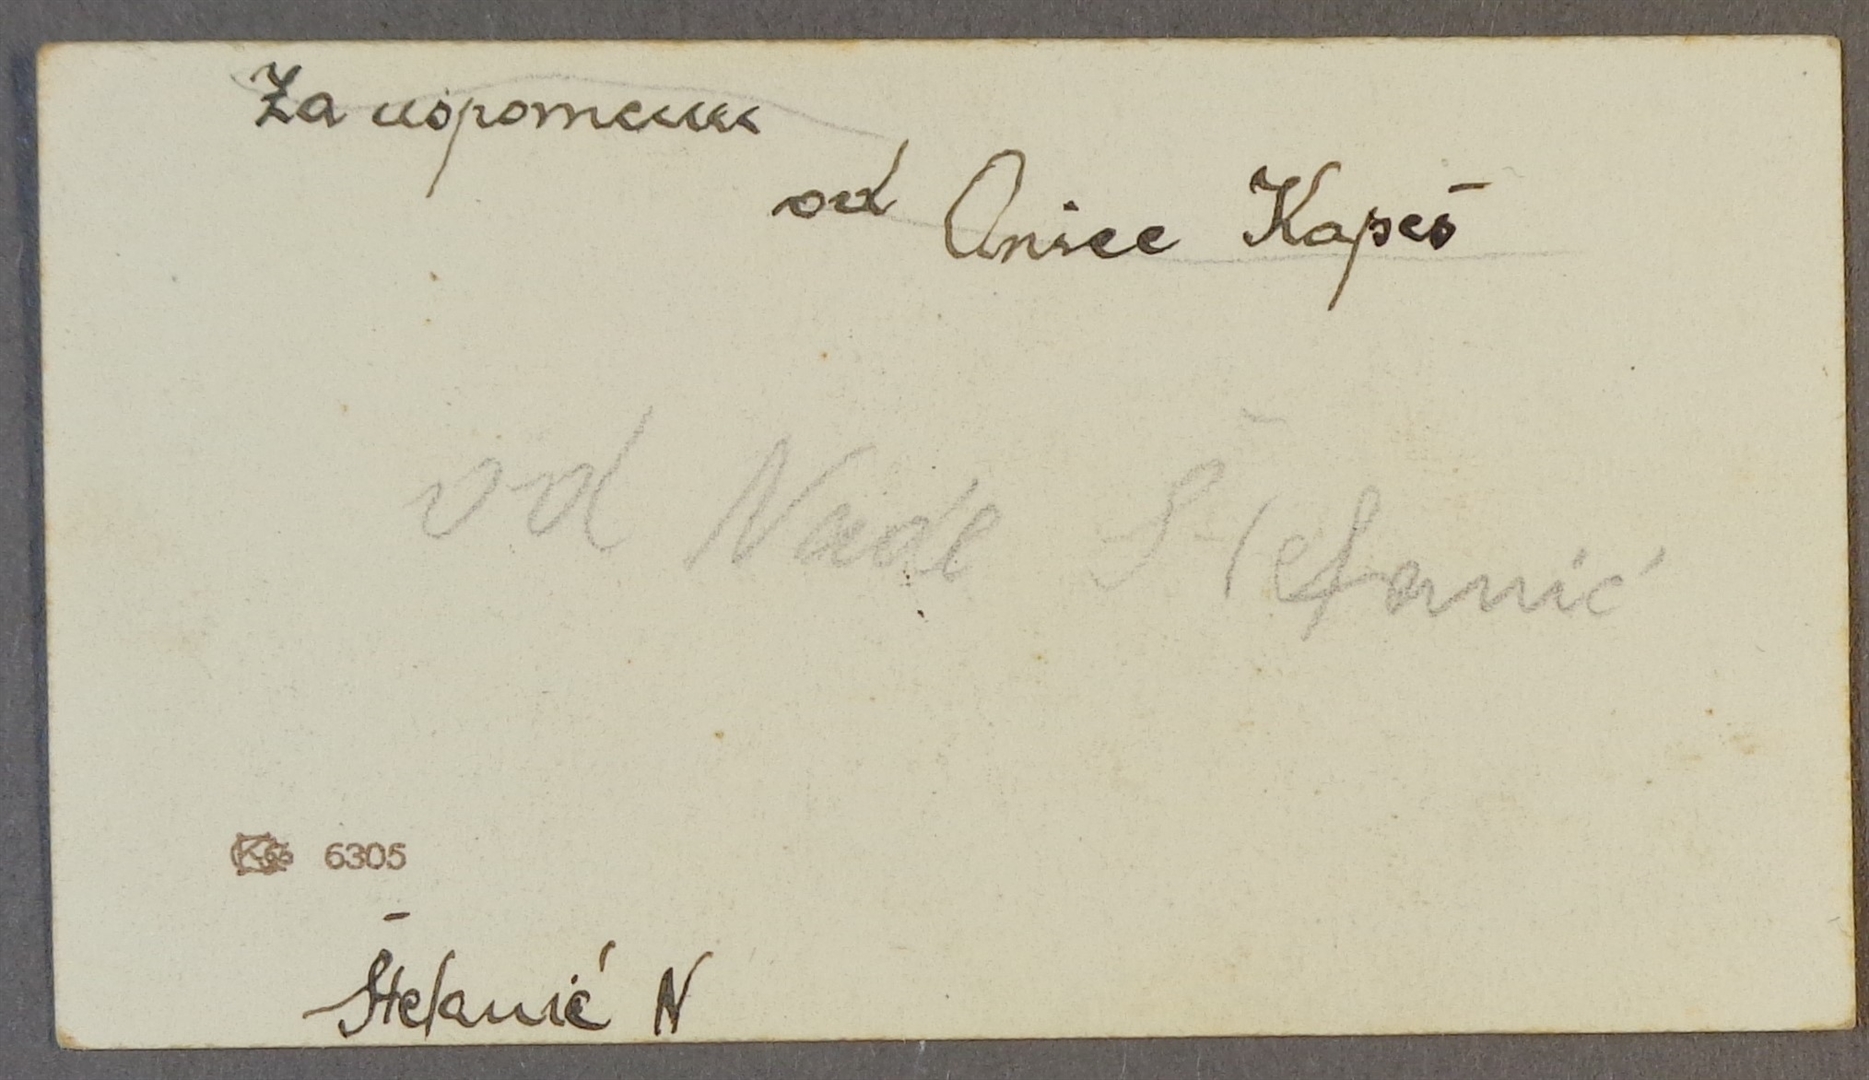 Za uspomenu
od Anice Kapeš
od Nade Štefanić
6305
Štefanić N